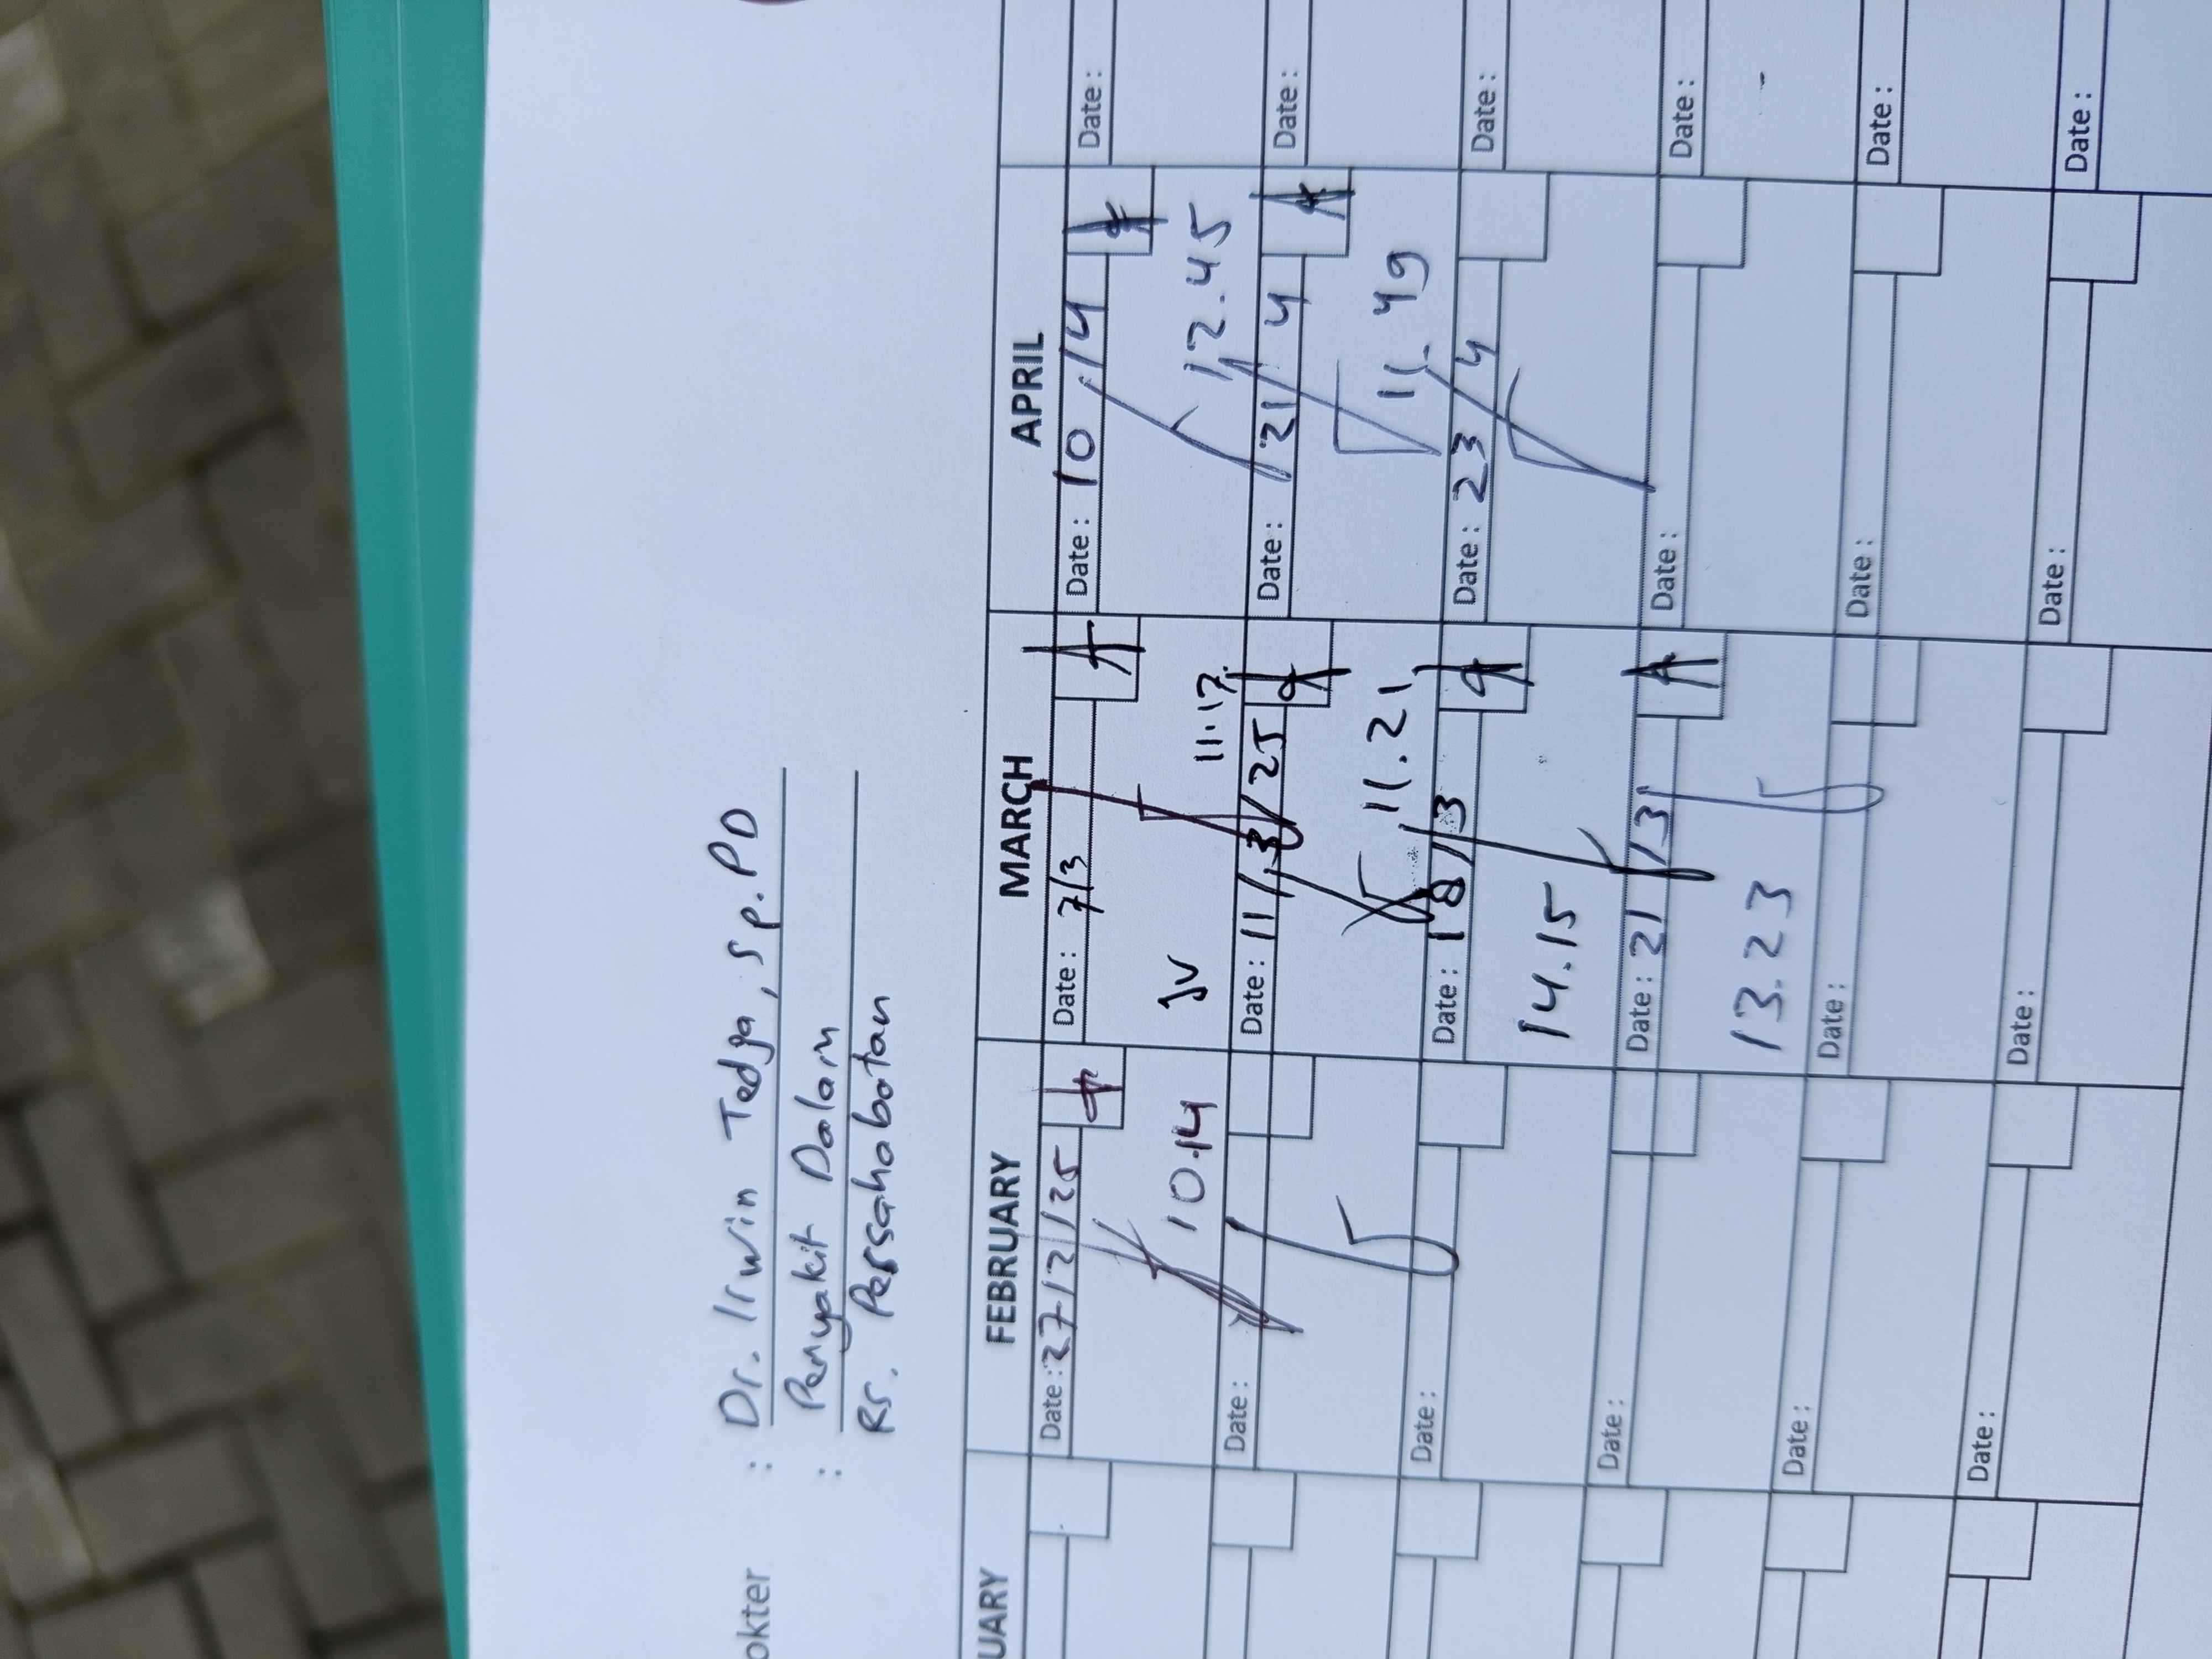 okter : Dr. Irwin Tedja, Sp.PD
: Penyakit Dalam
RS. Persahabatan
UARY FEBRUARY MARCH APRIL
Date: 27/2/25 Date: 7/3 Date: 10/4 Date:
10.14 JV 11.17 12.45
Date: Date: 11/3/25 Date: 21/4 Date:
11.21 11.49
Date: Date: 18/3 Date: 23/4 Date:
14.15
Date: Date: 21/3 Date: Date:
13.23
Date: Date: Date: Date:
Date: Date: Date: Date: